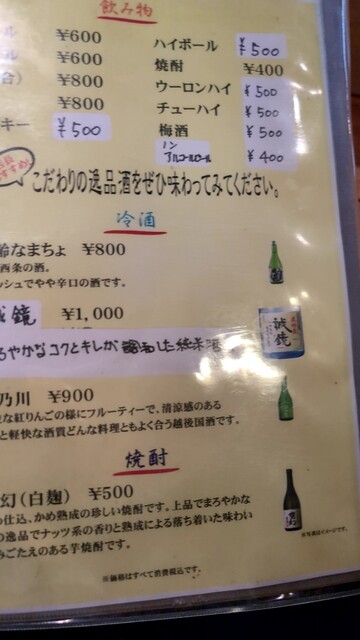 飲み物
ール ¥600
ール ¥600
合) ¥800
¥800
キー ¥500
ハイボール ¥500
焼酎 ¥400
ウーロンハイ ¥500
チューハイ ¥500
梅酒 ¥500
ノンアルコールビール ¥400
すすめ!
こだわりの逸品酒をぜひ味わってみてください。
冷酒
齢なまちょ ¥800
西条の酒。
ッシュでやや辛口の酒です。
誠鏡 ¥1,000
ろやかなコクとキレが調和した純米酒
誠鏡
乃川 ¥900
な紅りんごの様にフルーティーで、清涼感のある
と軽快な酒質どんな料理ともよく合う越後国酒です。
焼酎
幻(白麹) ¥500
の仕込、かめ熟成の珍しい焼酎です。上品でまろやかな
の逸品でナッツ系の香りと熟成による落ち着いた味わい
みごたえのある芋焼酎です。
※写真はイメージです。
※価格はすべて消費税込です。